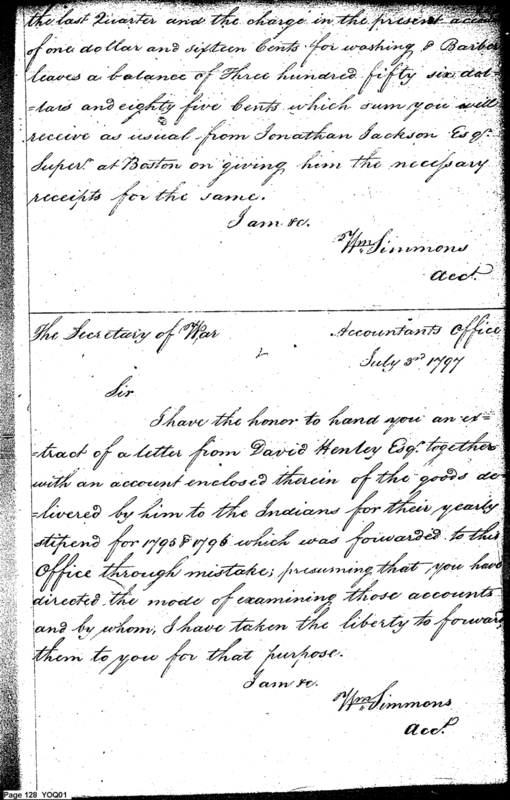 the last Quarter and the charge in the present accou
of one dollar and sixteen Cents for washing & Barber
leaves a balance of Three hundred fifty six dol-
=lars and eighty five Cents which sum you will
receive as usual from Jonathan Jackson Esqr.
Superr. at Boston on giving him the necessary
receipts for the same.
I am &c.
Wm Simmons
Acct.
The Secretary of War
Accountants Office
July 3rd 1797
Sir
I have the honor to hand you an ex=
=tract of a letter from David Henley Esqr. together
with an account enclosed therein of the goods de
=livered by him to the Indians for their yearly
stipend for 1795 & 1796 which was forwarded to this
Office through mistake; presuming that you have
directed the mode of examining those accounts
and by whom, I have taken the liberty to forward
them to you for that purpose.
I am &c.
Wm Simmons
Acct.
Page 128 YOQ01